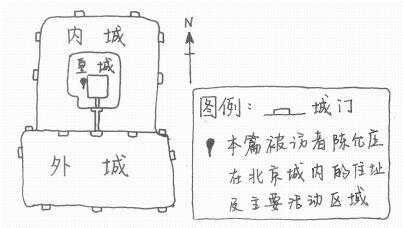 内城
N
皇城
外城
图例： 城门
本篇被访者陈允庄
在北京城内的住址
及主要活动区域